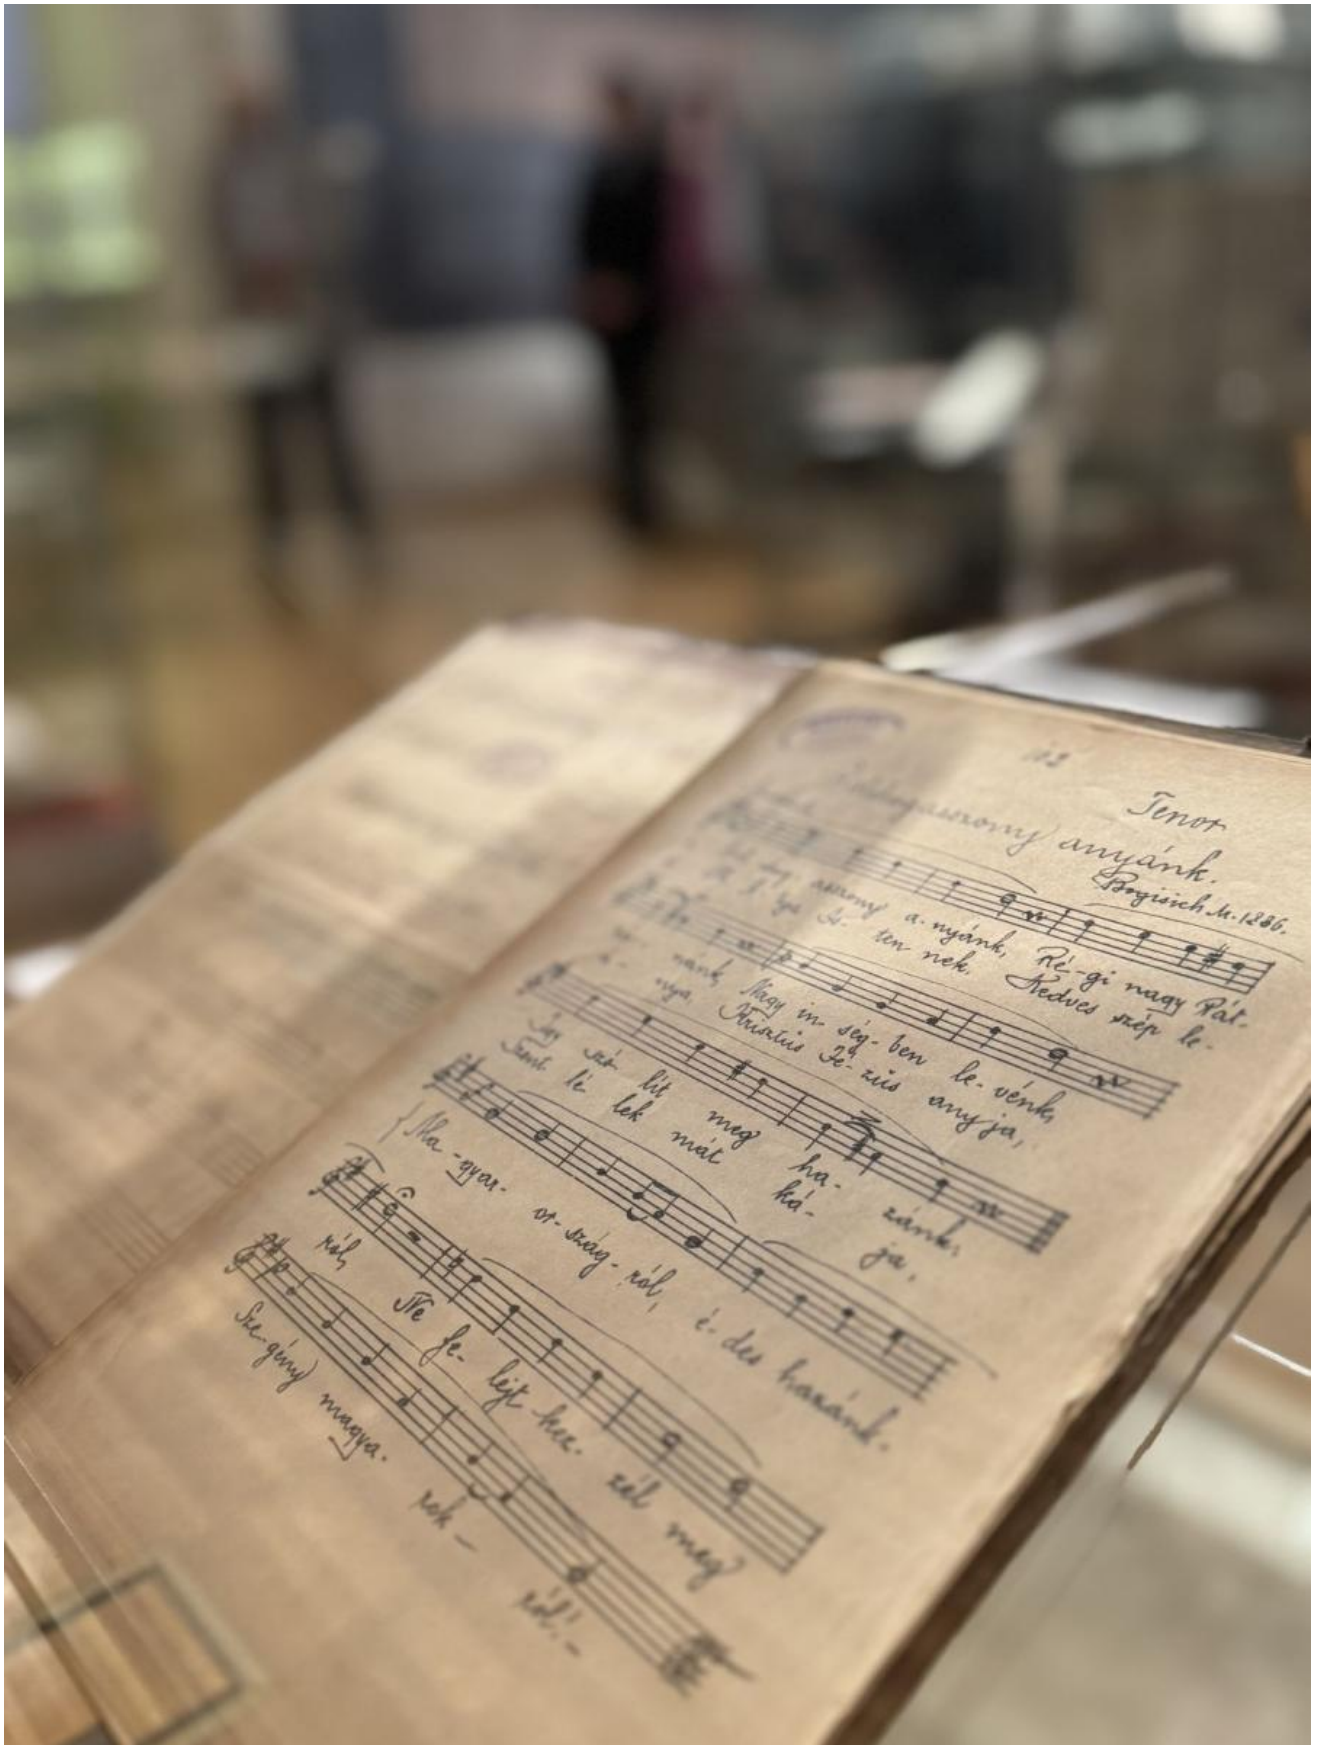 Tenor
anyánk.
Bogisich M. 1886.
asszony a-nyánk, Ré-gi nagy Pát-
Is- ten nek. Kedves szép le-
nánk, Nagy in-ség-ben le-vénk,
a- nya, Krisztus Jé-zus anyja,
Így szó- lít meg ha- zánk,
Szent lé lek mát ká- ja,
Ma-gyar- or-szág-ról, é-des hazánk-
ról, Ne fe- lejt-kez- zél meg
Sze-gény magya- rok- ról!-